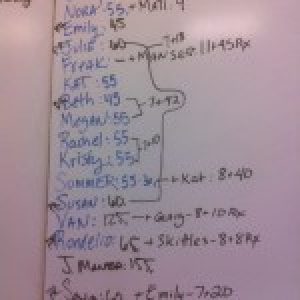 NORA: 55 + Matt: 4
*Emily: 45
*Julie: 60 7+18
Freak: - Man Seet 11+45Rx
KAT: 55
*Beth: 45 7+42
Megan: 55
Rachel: 55
Kristy: 55
SummER: 55 + Kat: 8+40
*Susan: 60
VAN: 125 + Greg - 8+10 Rx
*Rondelio: 65 + Skittles - 8+8Rx
J. Maurer: 155
+ Emily - 7+20